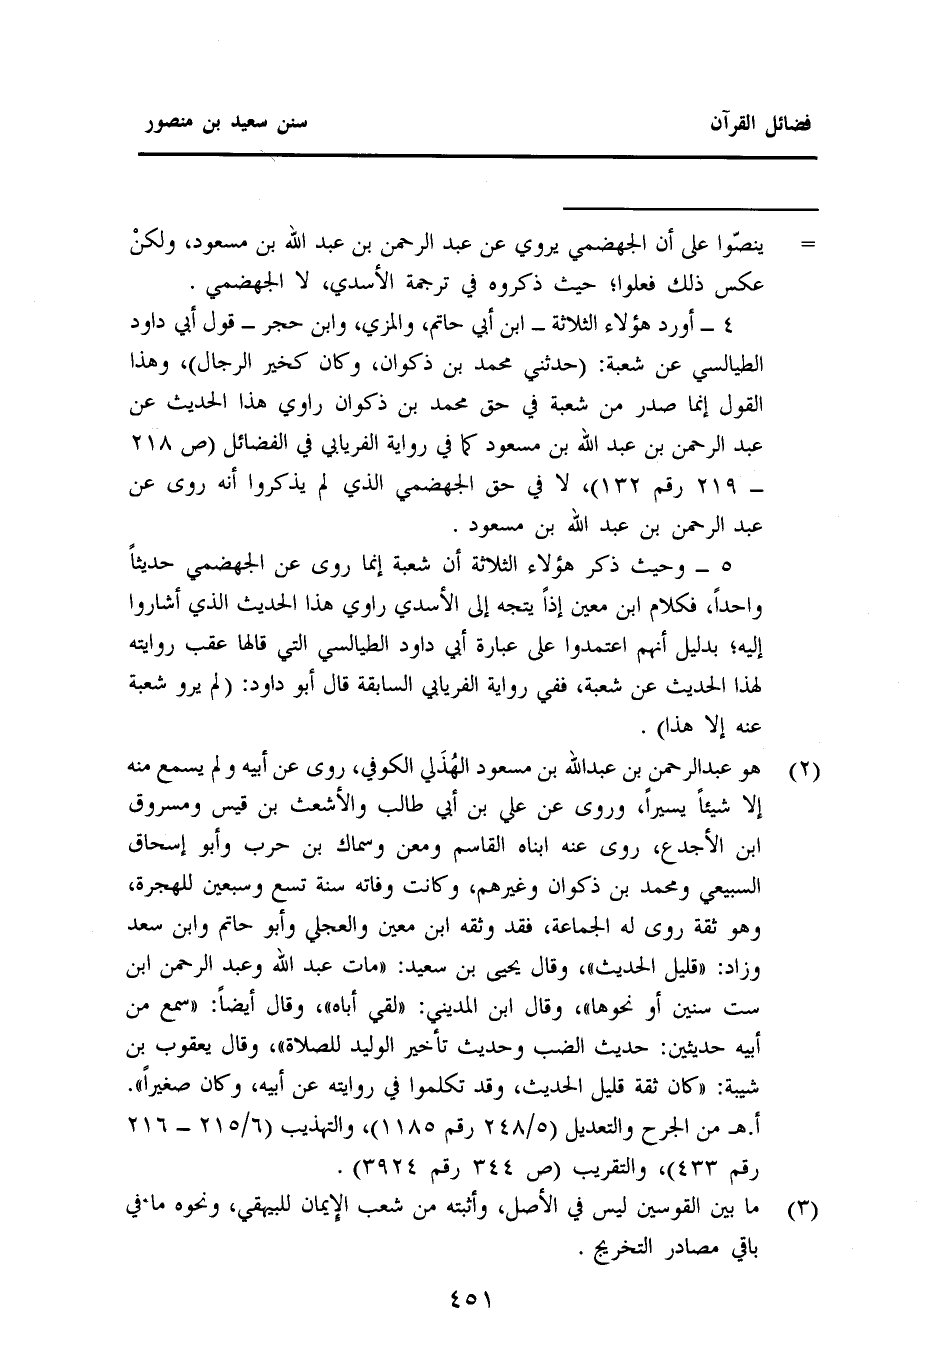 فضائل القرآن سنن سعيد بن منصور
= ينصّوا على أن الجهضمي يروي عن عبد الرحمن بن عبد الله بن مسعود، ولكنْ
عكس ذلك فعلوا؛ حيث ذكروه في ترجمة الأسدي، لا الجهضمي .
٤ ــ أورد هؤلاء الثلاثة ــ ابن أبي حاتم، والمزي، وابن حجر ــ قول أبي داود
الطيالسي عن شعبة: (حدثني محمد بن ذكوان، وكان كخير الرجال)، وهذا
القول إنما صدر من شعبة في حق محمد بن ذكوان راوي هذا الحديث عن
عبد الرحمن بن عبد الله بن مسعود كما في رواية الفريابي في الفضائل (ص ٢١٨
ــ ٢١٩ رقم ١٣٢)، لا في حق الجهضمي الذي لم يذكروا أنه روى عن
عبد الرحمن بن عبد الله بن مسعود .
٥ ــ وحيث ذكر هؤلاء الثلاثة أن شعبة إنما روى عن الجهضمي حديثاً
واحداً، فكلام ابن معين إذاً يتجه إلى الأسدي راوي هذا الحديث الذي أشاروا
إليه؛ بدليل أنهم اعتمدوا على عبارة أبي داود الطيالسي التي قالها عقب روايته
لهذا الحديث عن شعبة، ففي رواية الفريابي السابقة قال أبو داود: (لم يرو شعبة
عنه إلا هذا) .
(٢) هو عبدالرحمن بن عبدالله بن مسعود الهُذَلي الكوفي، روى عن أبيه ولم يسمع منه
إلا شيئاً يسيراً، وروى عن علي بن أبي طالب والأشعث بن قيس ومسروق
ابن الأجدع، روى عنه ابناه القاسم ومعن وسماك بن حرب وأبو إسحاق
السبيعي ومحمد بن ذكوان وغيرهم، وكانت وفاته سنة تسع وسبعين للهجرة،
وهو ثقة روى له الجماعة، فقد وثقه ابن معين والعجلي وأبو حاتم وابن سعد
وزاد: «قليل الحديث»، وقال يحيى بن سعيد: «مات عبد الله وعبد الرحمن ابن
ست سنين أو نحوها»، وقال ابن المديني: «لقي أباه»، وقال أيضاً: «سمع من
أبيه حديثين: حديث الضب وحديث تأخير الوليد للصلاة»، وقال يعقوب بن
شيبة: «كان ثقة قليل الحديث، وقد تكلموا في روايته عن أبيه، وكان صغيراً».
أ.هـ من الجرح والتعديل (٢٤٨/٥ رقم ١١٨٥)، والتهذيب (٢١٥/٦ ــ ٢١٦
رقم ٤٣٣)، والتقريب (ص ٣٤٤ رقم ٣٩٢٤) .
(٣) ما بين القوسين ليس في الأصل، وأثبته من شعب الإيمان للبيهقي، ونحوه ما في
باقي مصادر التخريج .
٤٥١